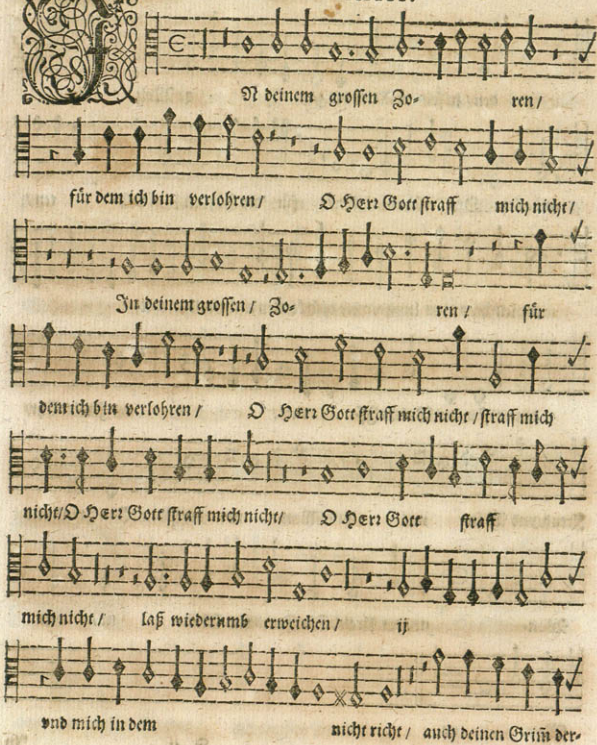 IN deinem grossen Zo- ren /
für dem ich bin verlohren / O Herr Gott straff mich nicht /
In deinem grossen / Zo- ren / für
dem ich bin verlohren / O Herr Gott straff mich nicht / straff mich
nicht/O Herr Gott straff mich nicht/ O Herr Gott straff
mich nicht / laß wiederumb erweichen / ij
vnd mich in dem nicht richt / auch deinen Grim̄ der-